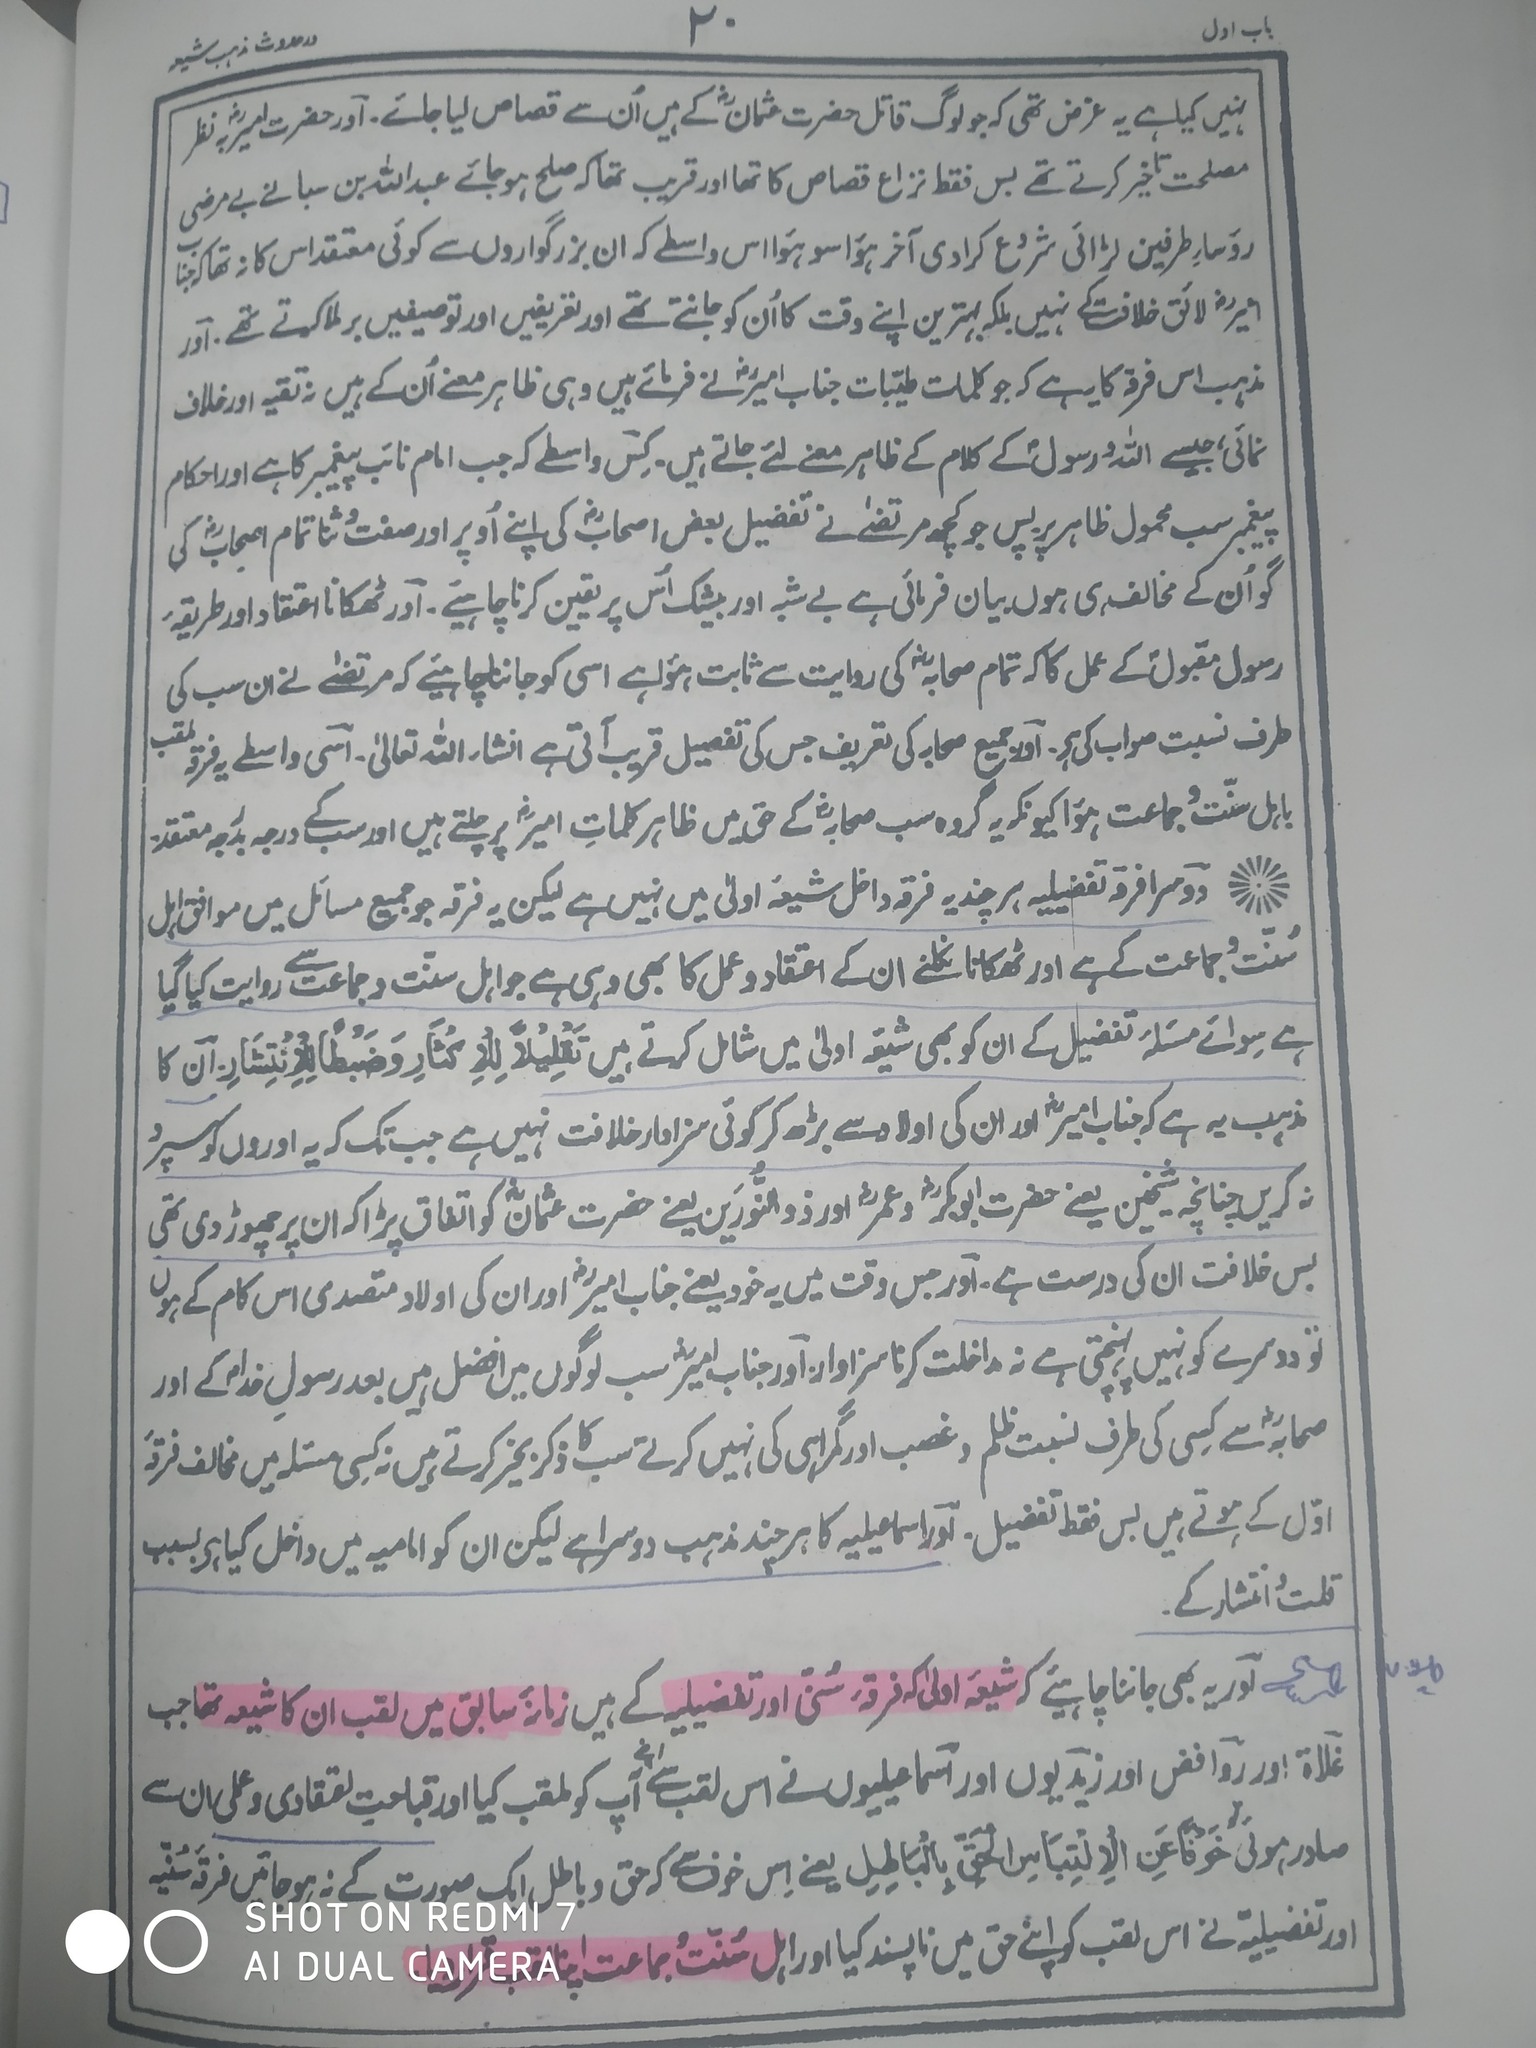 باب اول
۲۰
در حدوث مذہب شیعہ
نہیں کیا ہے یہ غرض تھی کہ جو لوگ قاتل حضرت عثمانؓ کے ہیں اُن سے قصاص لیا جائے۔ اور حضرت امیرؓ بہ نظر
مصلحت تاخیر کرتے تھے بس فقط نزاع قصاص کا تھا اور قریب تھا کہ صلح ہو جائے عبداللہ بن سبا نے بے مرضی
رؤسار طرفین لڑائی شروع کرا دی آخر ہؤا سو ہؤا اس واسطے کہ ان بزرگواروں سے کوئی معتقد اس کا نہ تھا کہ جناب
امیرؓ لائق خلافت کے نہیں بلکہ بہترین اپنے وقت کا اُن کو جانتے تھے اور تعریفیں اور توصیفیں برملا کرتے تھے۔ اور
مذہب اس فرقہ کا یہ ہے کہ جو کلمات طیّبات جناب امیرؓ نے فرمائے ہیں وہی ظاہر معنے اُن کے ہیں نہ تقیہ اور خلاف
نمائی، جیسے اللہ و رسولؐ کے کلام کے ظاہر معنے لئے جاتے ہیں۔ کِس واسطے کہ جب امام نائب پیغمبر کا ہے اور احکام
پیغمبر سب محمول ظاہر پر پس جو کچھ مرتضےٰ نے تفضیل بعض اصحابؓ کی اپنے اُوپر اور صفت و ثنا تمام اصحابؓ کی
گو اُن کے مخالف ہی ہوں بیان فرمائی ہے بے شبہ اور بیشک اُس پر یقین کرنا چاہیئے۔ اور ٹھکانا اعتقاد اور طریقۂ
رسول مقبولؐ کے عمل کا کہ تمام صحابہؓ کی روایت سے ثابت ہؤا ہے اسی کو جاننا چاہیئے کہ مرتضےٰ نے ان سب کی
طرف نسبت صواب کی ہے۔ اور جمیع صحابہ کی تعریف جس کی تفصیل قریب آتی ہے انشار اللہ تعالیٰ۔ اسی واسطے یہ فرقہ ملقب
باہل سنّت و جماعت ہؤا کیونکہ یہ گروہ سب صحابہؓ کے حق میں ظاہر کلمات امیرؓ پر چلتے ہیں اور سب کے درجہ بدرجہ معتقد۔
دوسرا فرقہ تفضیلیہ ہر چند یہ فرقہ داخل شیعۂ اولیٰ میں نہیں ہے لیکن یہ فرقہ جو جمیع مسائل میں موافق اہل
سُنّت و جماعت کے ہے اور ٹھکانا نکلنے ان کے اعتقاد و عمل کا بھی وہی ہے جو اہل سنّت و جماعت سے روایت کیا گیا
ہے سوائے مسئلۂ تفضیل کے ان کو بھی شیعۂ اولیٰ میں شامل کرتے ہیں تَقْلِیْلاً لِلْاِکْثَارِ وَضَبْطًا لِلْاِنْتِشَارِ۔ ان کا
مذہب یہ ہے کہ جناب امیرؓ اور ان کی اولاد سے بڑھ کر کوئی سزاوار خلافت نہیں ہے جب تک کہ یہ اوروں کو سپرد
نہ کریں چنانچہ شیخین یعنے حضرت ابوبکرؓ و عمرؓ اور ذوالنُّورَین یعنے حضرت عثمانؓ کو اتفاق پڑا کہ ان پر چھوڑ دی تھی
بس خلافت ان کی درست ہے۔ اور جس وقت میں یہ خود یعنے جناب امیرؓ اور ان کی اولاد متصدی اس کام کے ہوں
تو دوسرے کو نہیں پہنچتی ہے نہ مداخلت کرنا سزاوار۔ اور جناب امیرؓ سب لوگوں میں افضل ہیں بعد رسولِ خداؐ کے اور
صحابہؓ سے کِسی کی طرف نسبت ظلم و غصب اور گمراہی کی نہیں کرتے سب کا ذکر بخیر کرتے ہیں نہ کسی مسئلہ میں مخالف فرقۂ
اوّل کے ہوتے ہیں بس فقط تفضیل۔ اور اسماعیلیہ کا ہر چند مذہب دوسرا ہے لیکن ان کو امامیہ میں داخل کیا ہے بسبب
قلت و انتشار کے۔
اور یہ بھی جاننا چاہیئے کہ شیعۂ اولیٰ کہ فرقۂ سُنّی اور تفضیلیہ کے ہیں زمانۂ سابق میں لقب ان کا شیعہ تھا جب
غلاۃ اور روافض اور زیدیوں اور اسماعیلیوں نے اس لقب سے اپنے آپ کو ملقب کیا اور قباحتِ اعتقادی و عملی ان سے
صادر ہوئی خَوْفًا عَنِ الْاِلْتِبَاسِ الْحَقِّ بِالْبَاطِلِ یعنے اِس خوف سے کہ حق و باطل ایک صورت کے نہ ہو جائیں فرقۂ سُنّیہ
اور تفضیلیہ نے اس لقب کو اپنے حق میں ناپسند کیا اور اہل سُنّت و جماعت اپنا لقب قرار دیا
SHOT ON REDMI 7
AI DUAL CAMERA